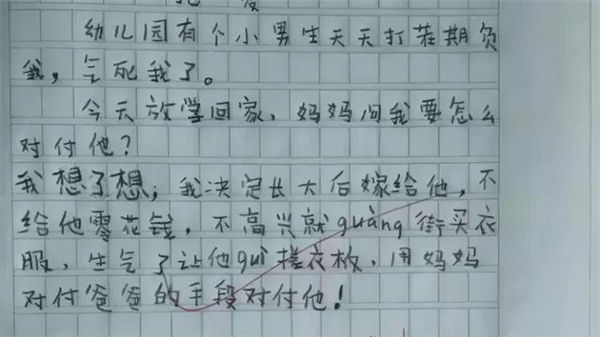 幼儿园有个小男生天天打茬期负
我，气死我了。
今天放学回家，妈妈问我要怎么
对付他？
我想了想，我决定长大后嫁给他，不
给他零花钱，不高兴就guàng街买衣
服，生气了让他guì搓衣板，用妈妈
对付爸爸的手段对付他！